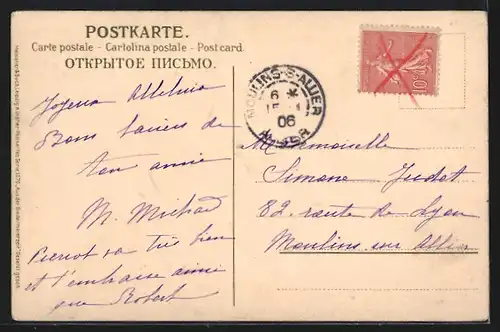 POSTKARTE.
Carte postale - Cartolina postale - Postcard.
ОТКРЫТОЕ ПИСЬМО.
Joyeux Alleluia
Bons baisers de
ton amie
M. Michard
Pierrot va très bien
et t'embrasse ainsi
que Robert
MOULINS-S-ALLIER
6
15
06
ALLIER
10c
Mademoiselle
Simone Judet
82 route de Lyon
Moulins sur Allier